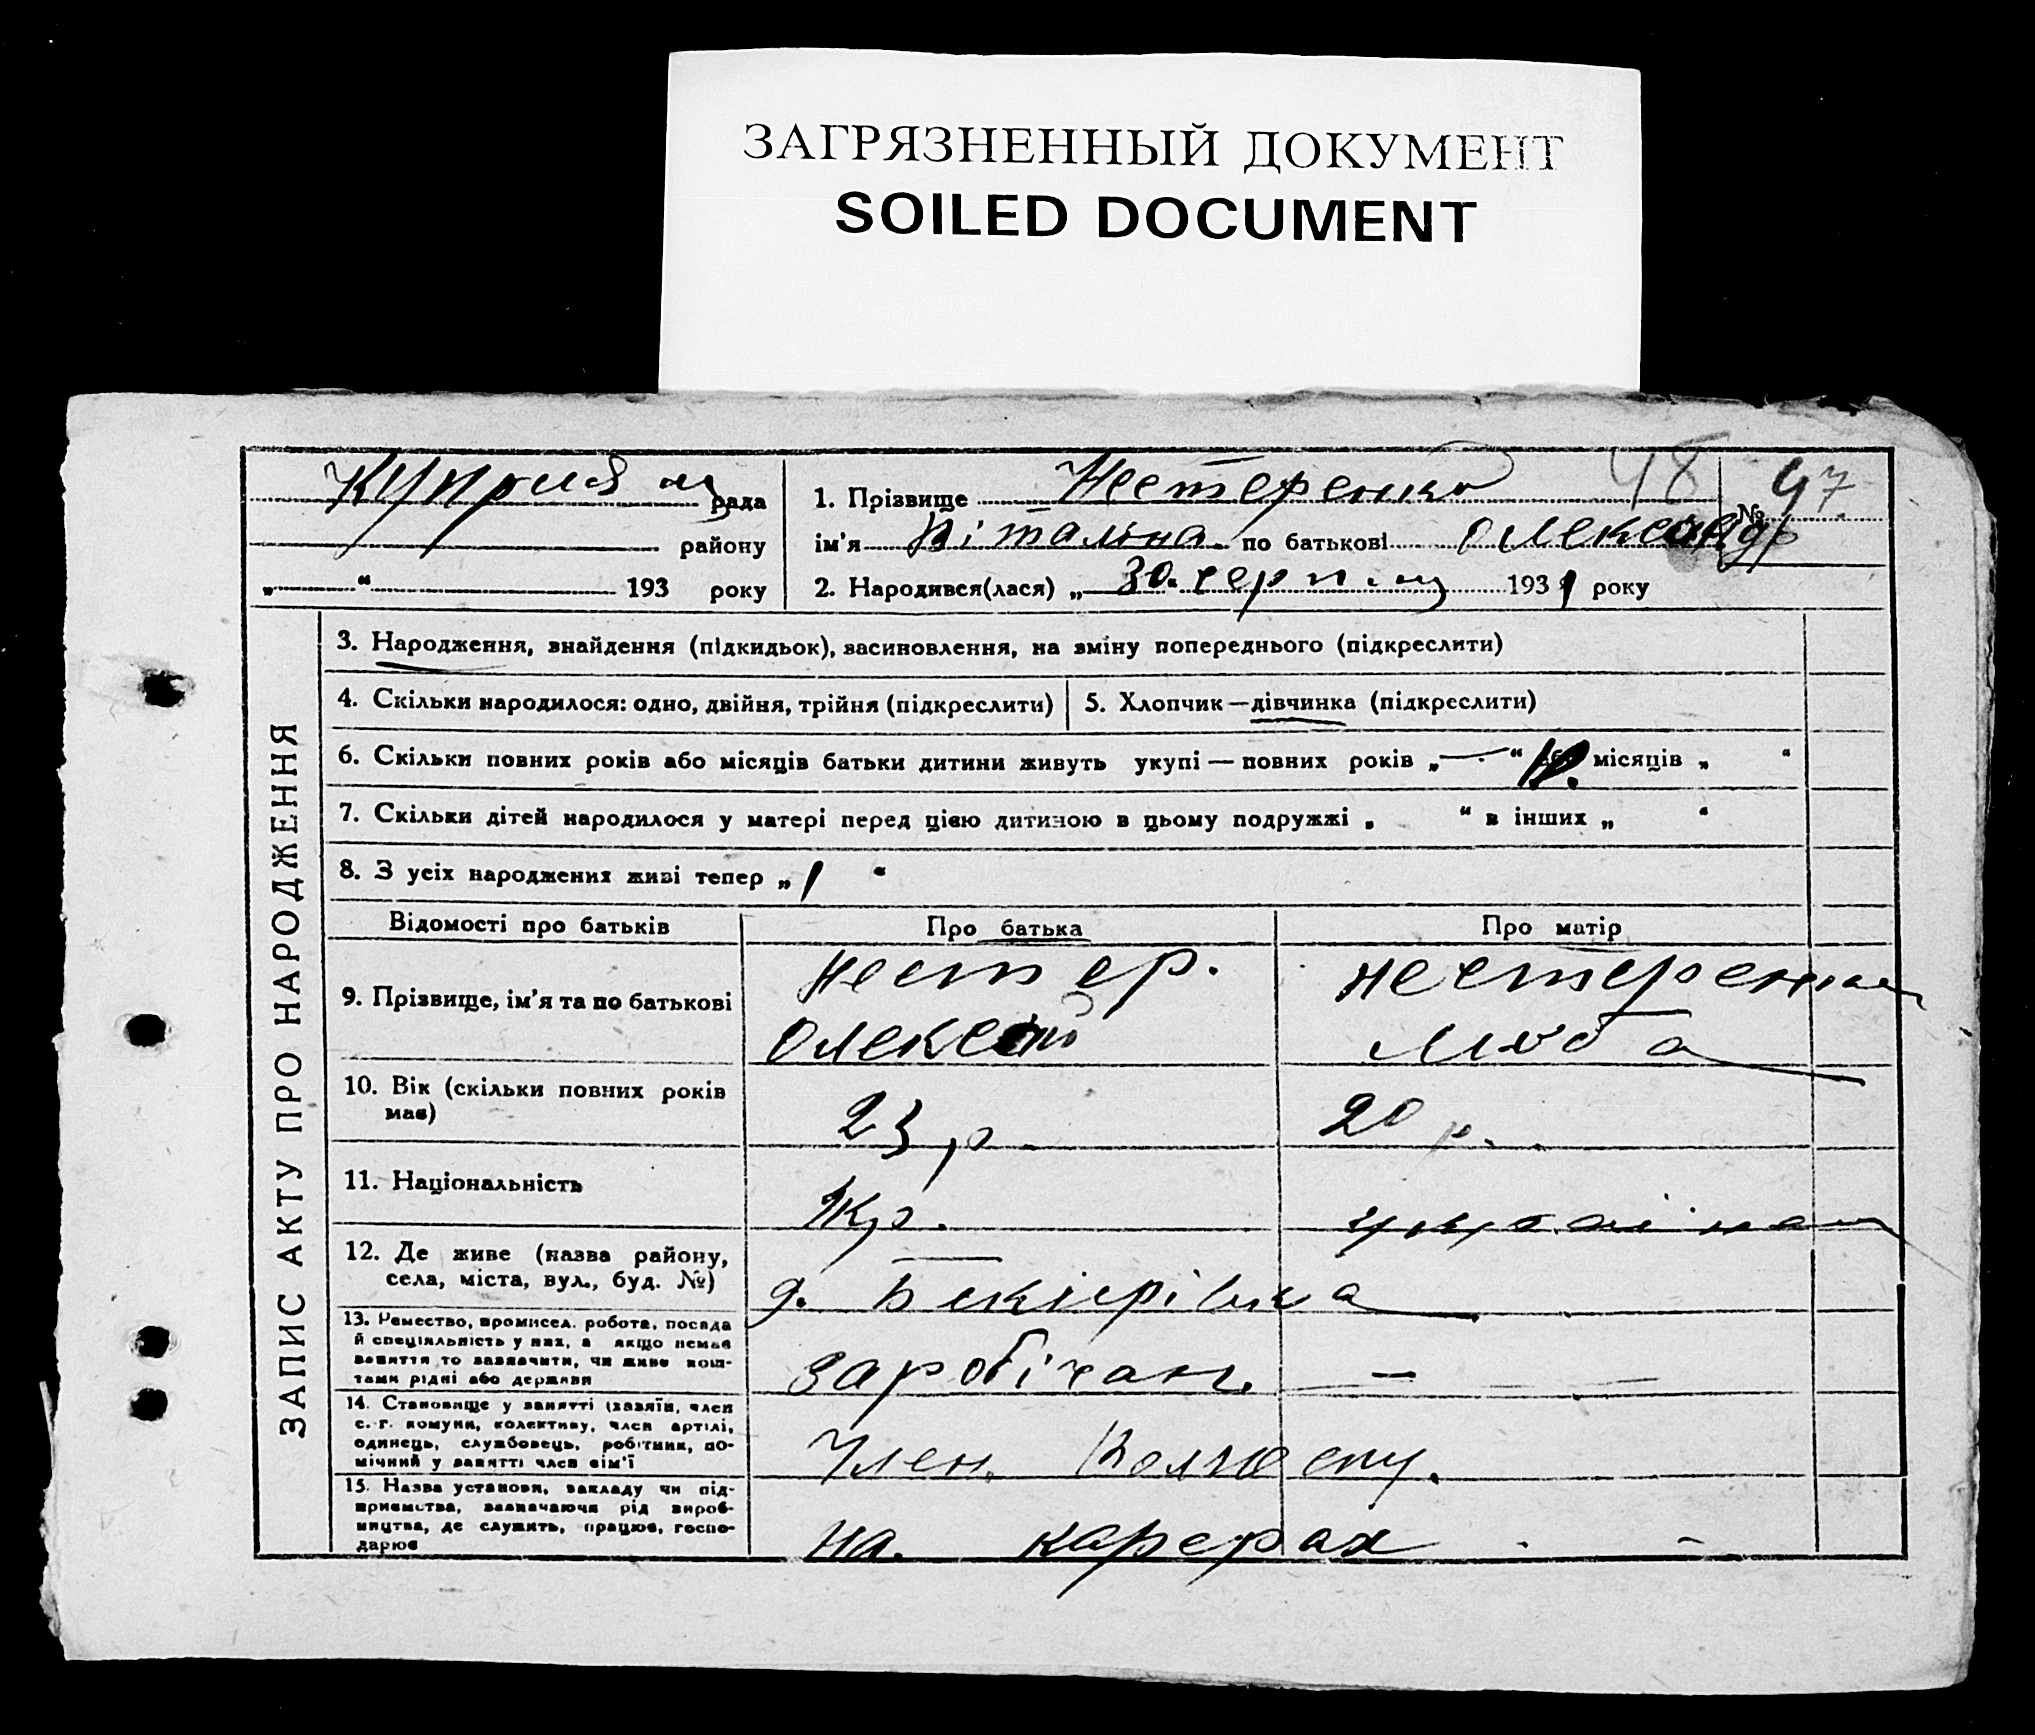 ЗАГРЯЗНЕННЫЙ ДОКУМЕНТ
SOILED DOCUMENT
рада
району
„ “ 193 року
1. Прізвище Нестеренко 48
ім'я Віталіна по батькові Олександр
№ 97
2. Народився(лася) „ 30 серпня 1931 року
ЗАПИС АКТУ ПРО НАРОДЖЕННЯ
3. Народження, знайдення (підкидьок), засиновлення, на зміну попереднього (підкреслити)
4. Скільки народилося: одно, двійня, трійня (підкреслити)
5. Хлопчик—дівчинка (підкреслити)
6. Скільки повних років або місяців батьки дитини живуть укупі — повних років „ — “ місяців „ “
7. Скільки дітей народилося у матері перед цією дитиною в цьому подружжі „ “ в інших „ “
8. З усіх народжених живі тепер „ 1 “
Відомості про батьків
Про батька
Про матір
9. Прізвище, ім'я та по батькові
Нестер.
Нестеренко
Люба
10. Вік (скільки повних років має)
23 р.
20 р.
11. Національність
Укр.
українка
12. Де живе (назва району,
села, міста, вул., буд. №)
13. Ремество, промисел, робота, посада
й спеціяльність у них, а якщо немає
заняття то зазначити, чи живе кош-
тами рідні або держави
заробічан. —
14. Становище у занятті (хазяїн, член
с.-г. комуни, колективу, член артілі,
одинець, службовець, робітник, по-
мічний у занятті член сім'ї
Член Колгоспу.
15. Назва установи, закладу чи під-
приємства, зазначаючи рід вироб-
ництва, де служить, працює, госпо-
дарює
на карерах –